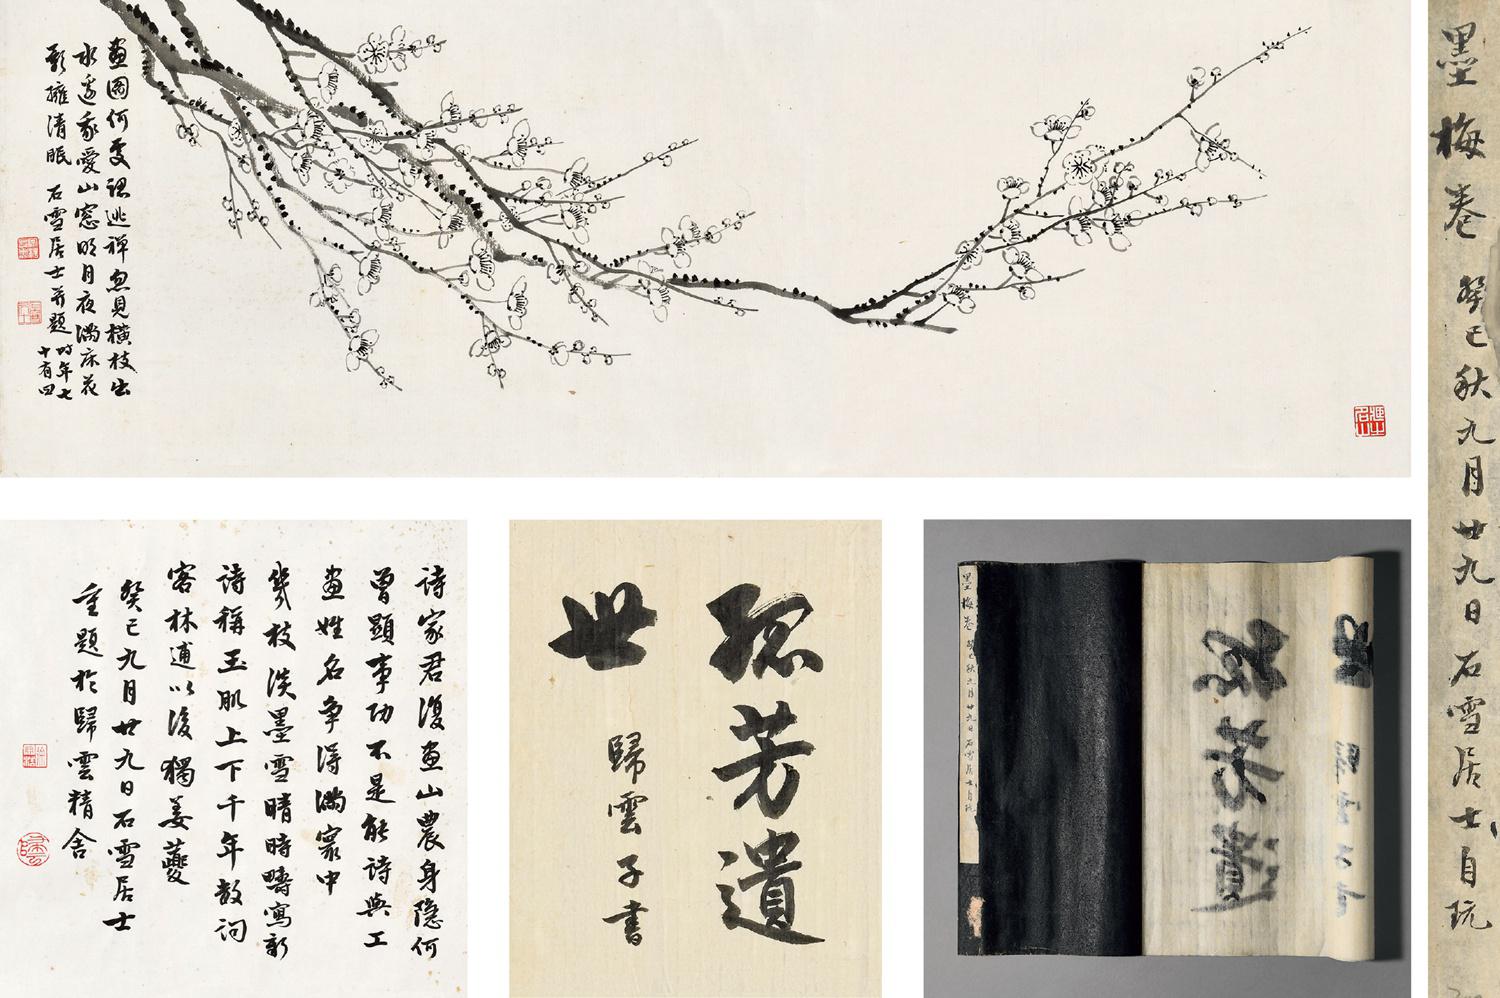 畫圖何處認逃禪忽見橫枝出
水邊最愛山窓明月夜滿床花
影擁清眠 石雪居士并題 時年七
十有四
墨梅卷 癸巳秋九月廿九日石雪居士自玩
詩家君復畫山農身隱何
曾顯事功不是能詩與工
畫姓名爭得滿寰中
幾枝淡墨雪晴時疇寫新
詩稱玉肌上下千年數詞
客林逋以後獨姜夔
癸巳九月廿九日石雪居士
重題於歸雲精舍
孤芳遺
世 歸雲子書
孤芳遺
墨梅卷 癸巳秋九月廿九日石雪居士自玩